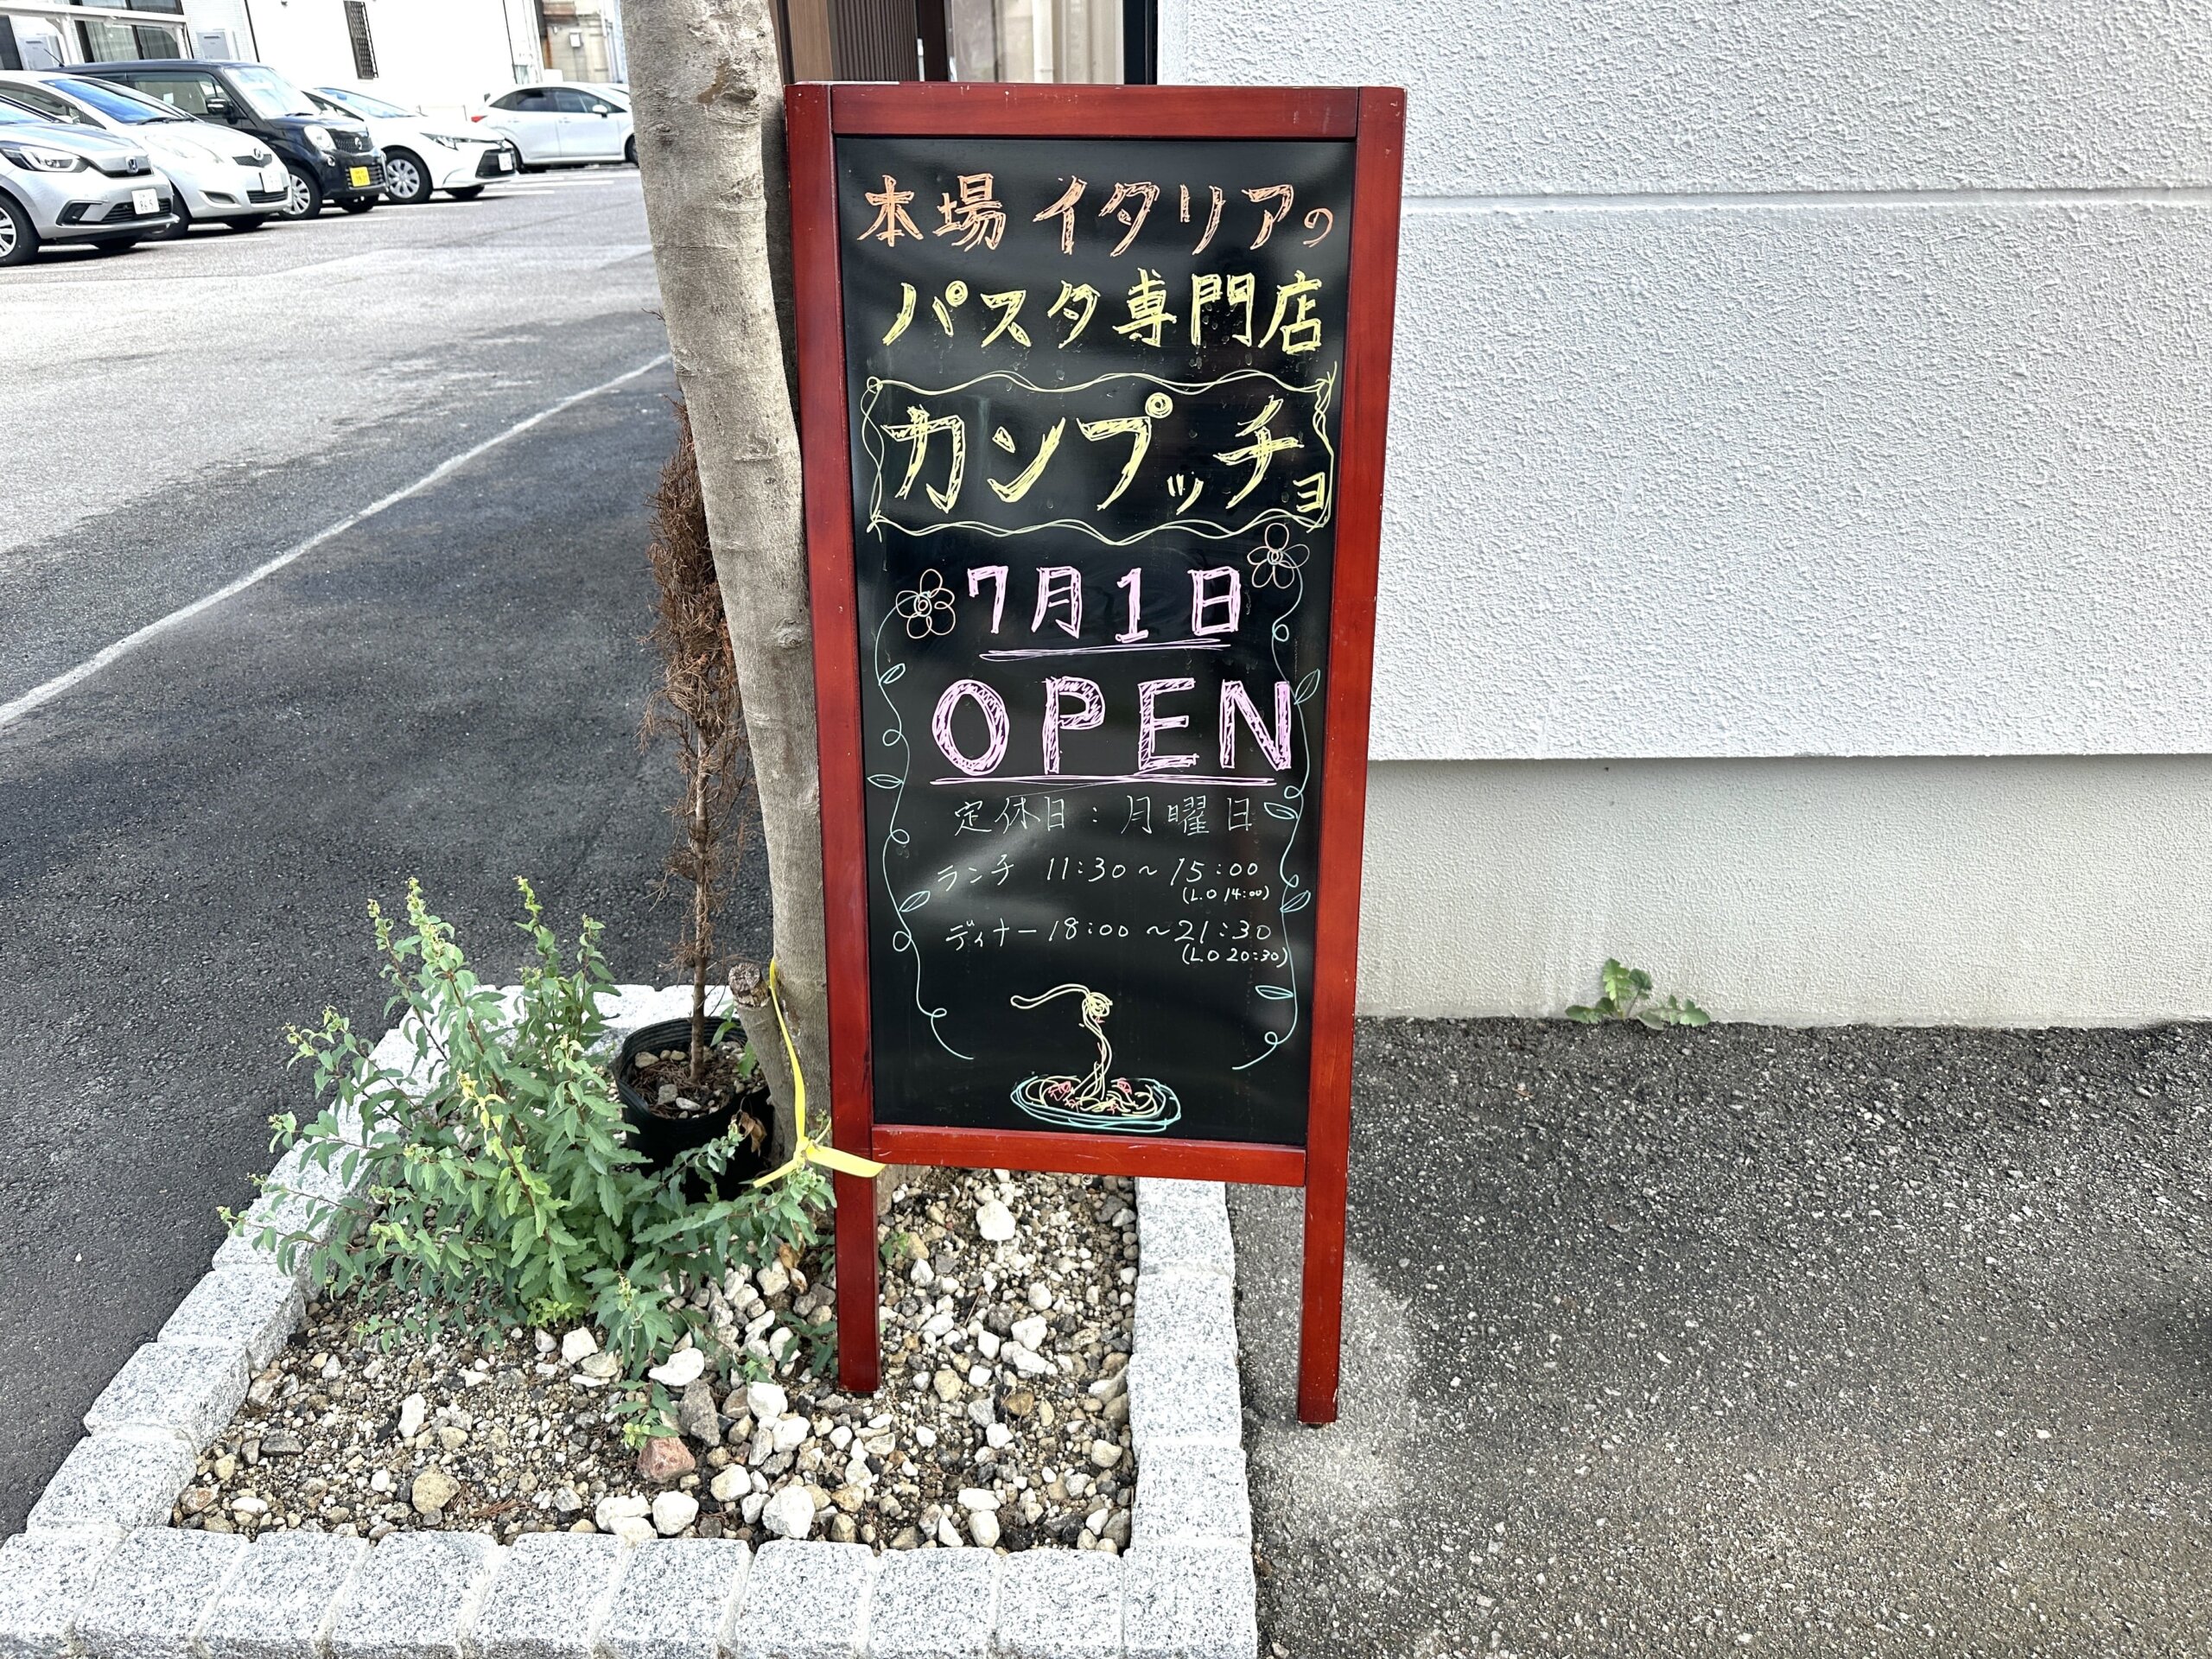 本場イタリアの
パスタ専門店
カンプッチョ
7月1日
OPEN
定休日：月曜日
ランチ 11:30～15:00
(L.O 14:00)
ディナー 18:00～21:30
(L.O 20:30)